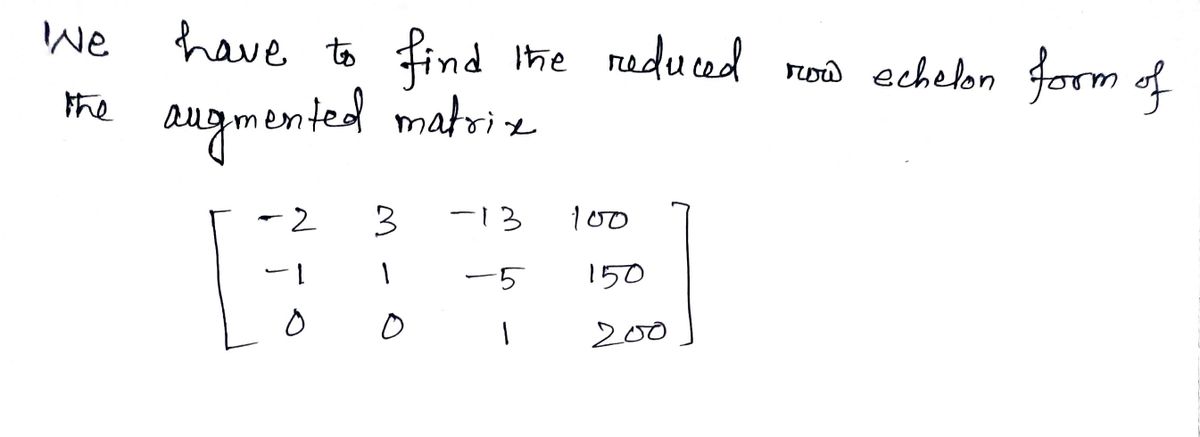 We have to find the reduced row echelon form of
the augmented matrix
-2 3 -13 100
-1 1 -5 150
0 0 1 200